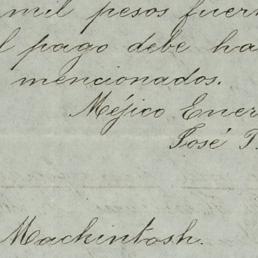 mil pesos fuer
pago debe ha
mencionados.
Méjico Ener
José
Mackintosh.